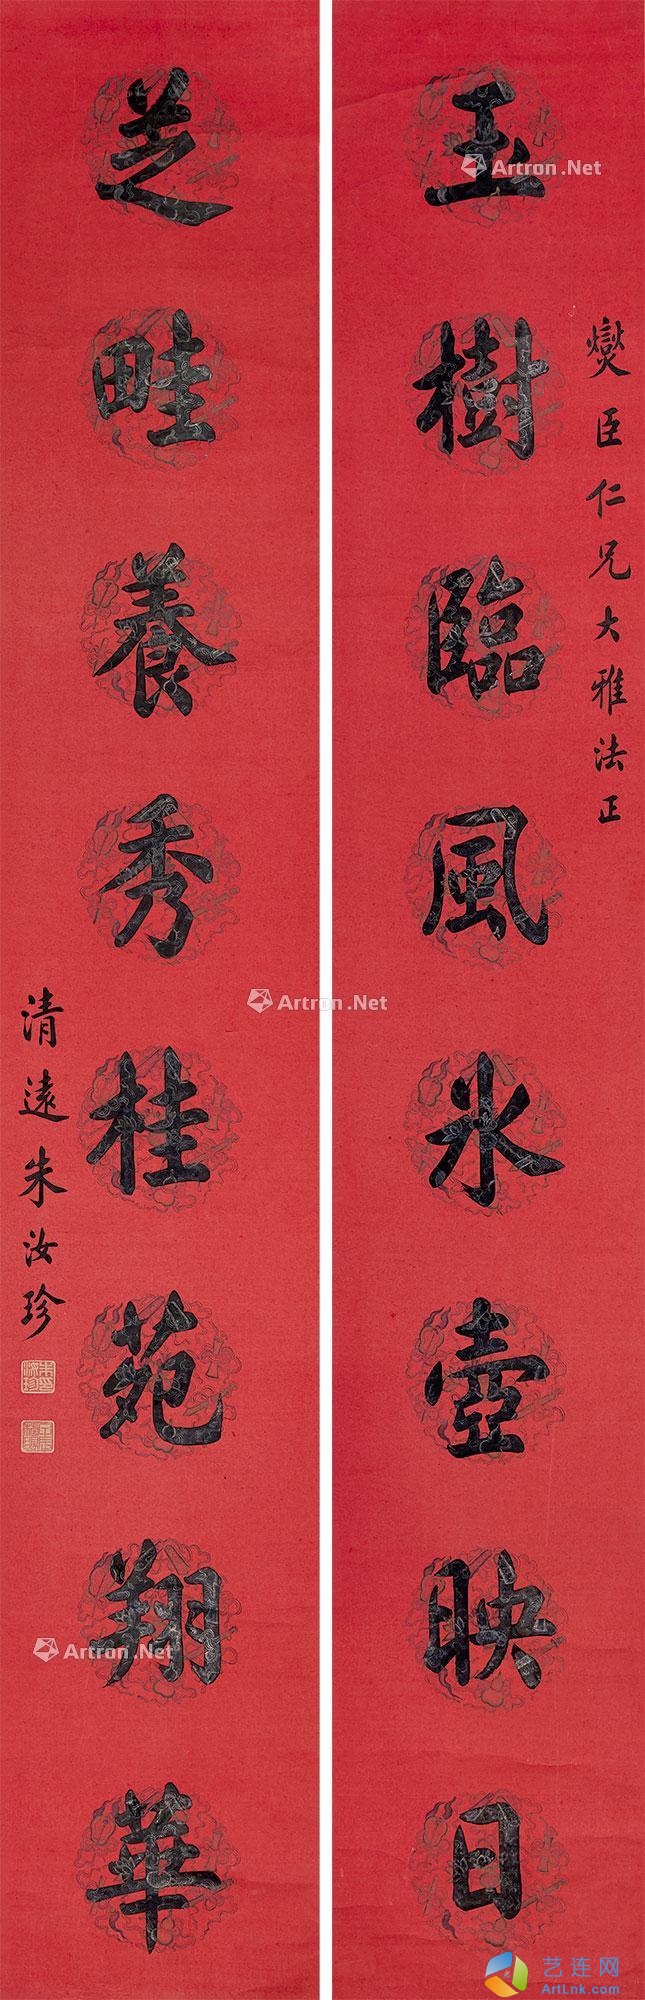 燮臣仁兄大雅法正
玉樹臨風冰壺映日
芝畦養秀桂苑翔華
清遠朱汝珍
朱汝珍印
Artron.Net
Artron.Net
Artron.Net
艺连网
ArtLnk.com